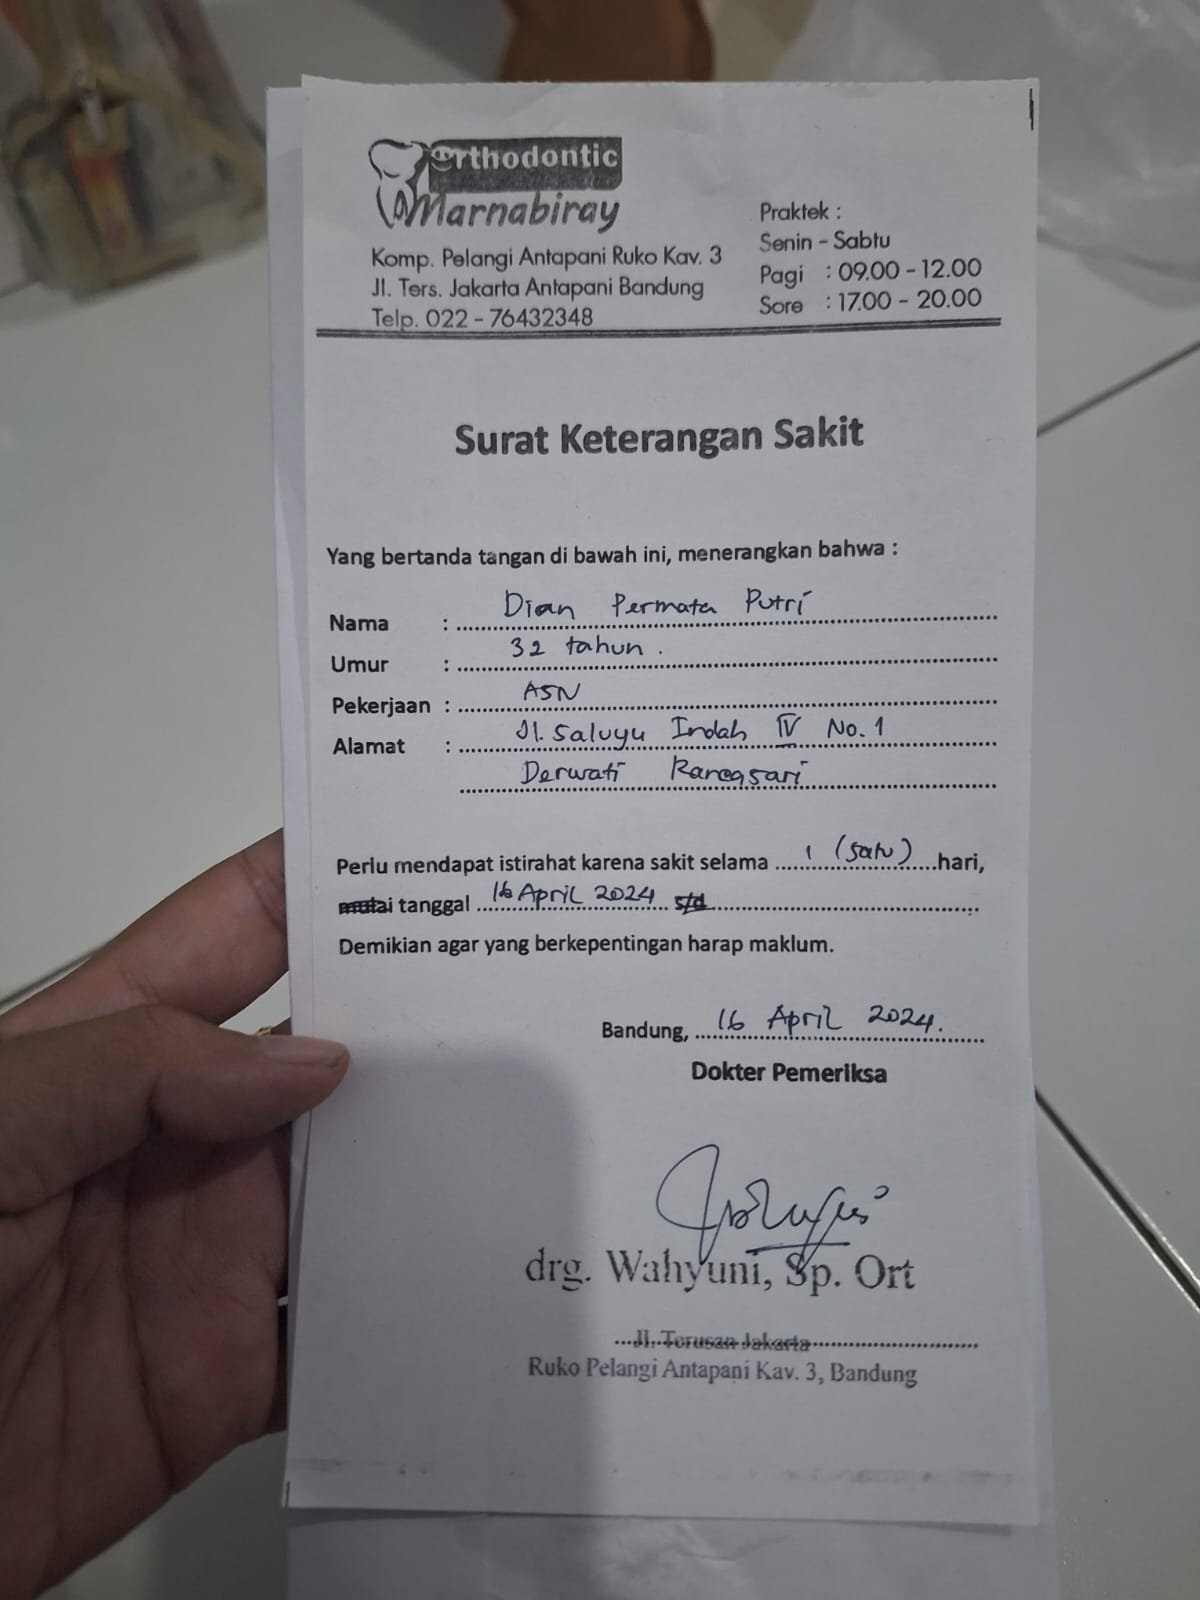 Orthodontic
Marnabiray
Komp. Pelangi Antapani Ruko Kav. 3
Jl. Ters. Jakarta Antapani Bandung
Telp. 022 - 76432348
Praktek :
Senin - Sabtu
Pagi : 09.00 - 12.00
Sore : 17.00 - 20.00
Surat Keterangan Sakit
Yang bertanda tangan di bawah ini, menerangkan bahwa :
Nama : Dian Permata Putri
Umur : 32 tahun.
Pekerjaan : ASN
Alamat : Jl. Saluyu Indah IV No. 1
Derwati Rancasari
Perlu mendapat istirahat karena sakit selama 1 (satu) hari,
mulai tanggal 16 April 2024 s/d
Demikian agar yang berkepentingan harap maklum.
Bandung, 16 April 2024.
Dokter Pemeriksa
drg. Wahyuni, Sp. Ort
Jl. Terusan Jakarta
Ruko Pelangi Antapani Kav. 3, Bandung